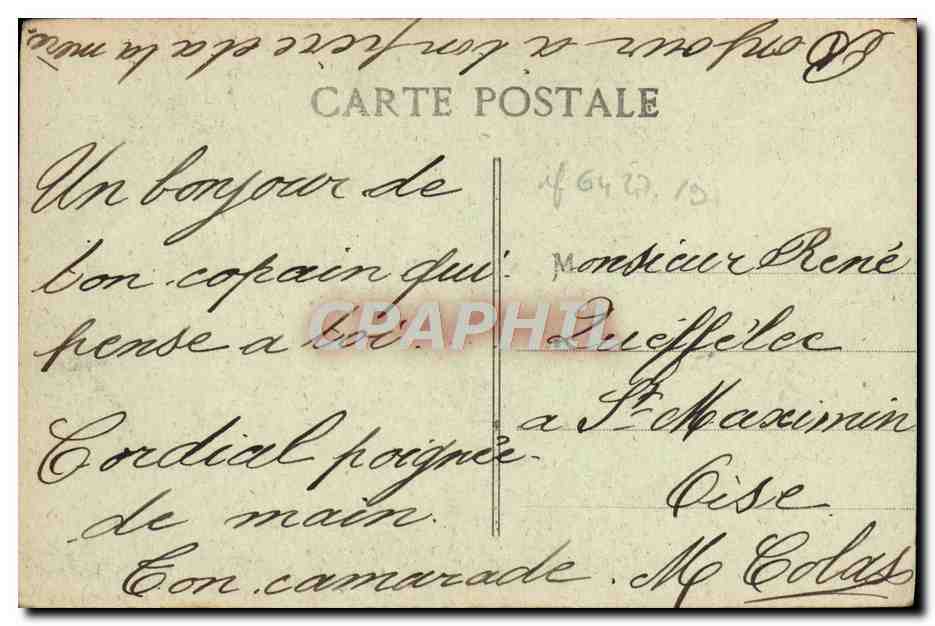 Bonjour a ton père et a la mère
CARTE POSTALE
Un bonjour de
ton copain qui
pense a toi.
Cordial poignée
de main.
Ton camarade. M Colas
Monsieur René
Queffélec
a St Maximin
Oise
CPAPHIL